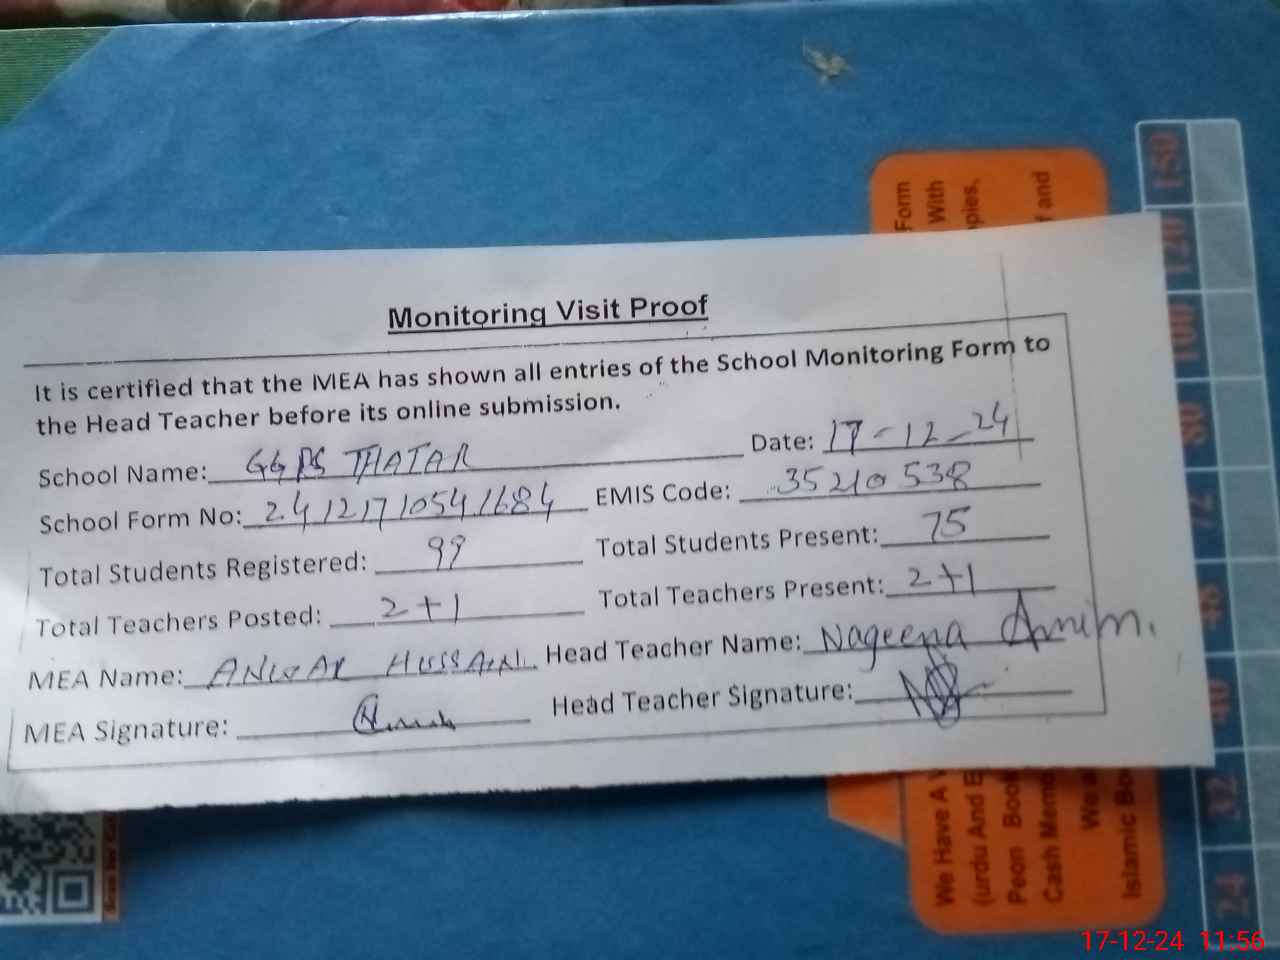 Monitoring Visit Proof
It is certified that the MEA has shown all entries of the School Monitoring Form to
the Head Teacher before its online submission.
School Name: GGPS THATAR Date: 17-12-24
School Form No: 24121710541684 EMIS Code: 35210538
Total Students Registered: 99 Total Students Present: 75
Total Teachers Posted: 2+1 Total Teachers Present: 2+1
MEA Name: ANWAR HUSSAIN Head Teacher Name: Nageena Amim.
MEA Signature: Head Teacher Signature:
Form
With
opies.
and
We Have A
(urdu And E
Peon Boo
Cash Memo
We
Islamic Bo
150
120
100
80
72
48
40
32
24
17-12-24 11:56